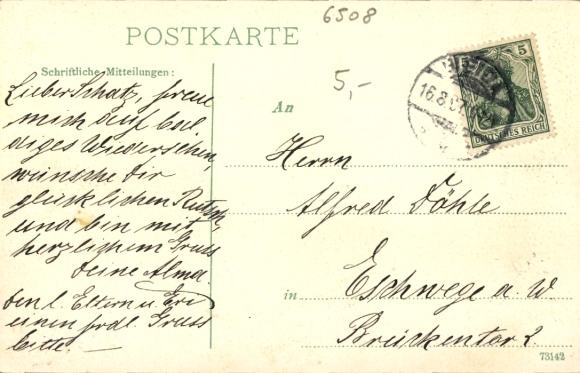 6508
POSTKARTE
Schriftliche Mitteilungen:
5,-
Lieber Schatz, freue
mich auf bal
diges Wiedersehen,
wünsche Dir
glücklichen Rutsch
und bin mit
herzlichem Gruss
deine Alma
den l. Eltern u.
einen frdl. Gruss
bitte. —
An
Herrn
Alfred Döhle
in Eschwege a. W.
Brückentor 2.
5
DEUTSCHES REICH
16.8.07
73142